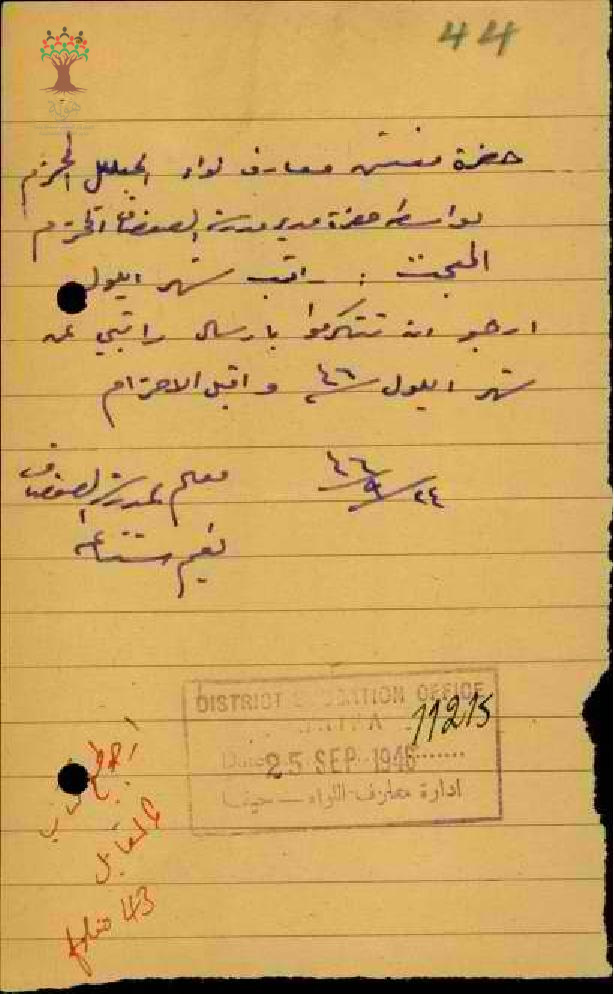 44
هوية
حضرة مفتش معارف لواء الجليل المحترم
بواسطة حضرة مدير مدرسة الصفصاف المحترم
المبحث : راتب شهر ايلول
ارجو ان تتكرموا بارسال راتبي عن
شهر ايلول ٤٦ واقبل الاحترام
٢٤/٩/٤٦
معلم بمدرسة الصفصاف
نعيم
DISTRICT EDUCATION OFFICE
HAIFA
11215
Date 25 SEP 1946
ادارة معارف اللواء – حيفا
المقابل
folio 43